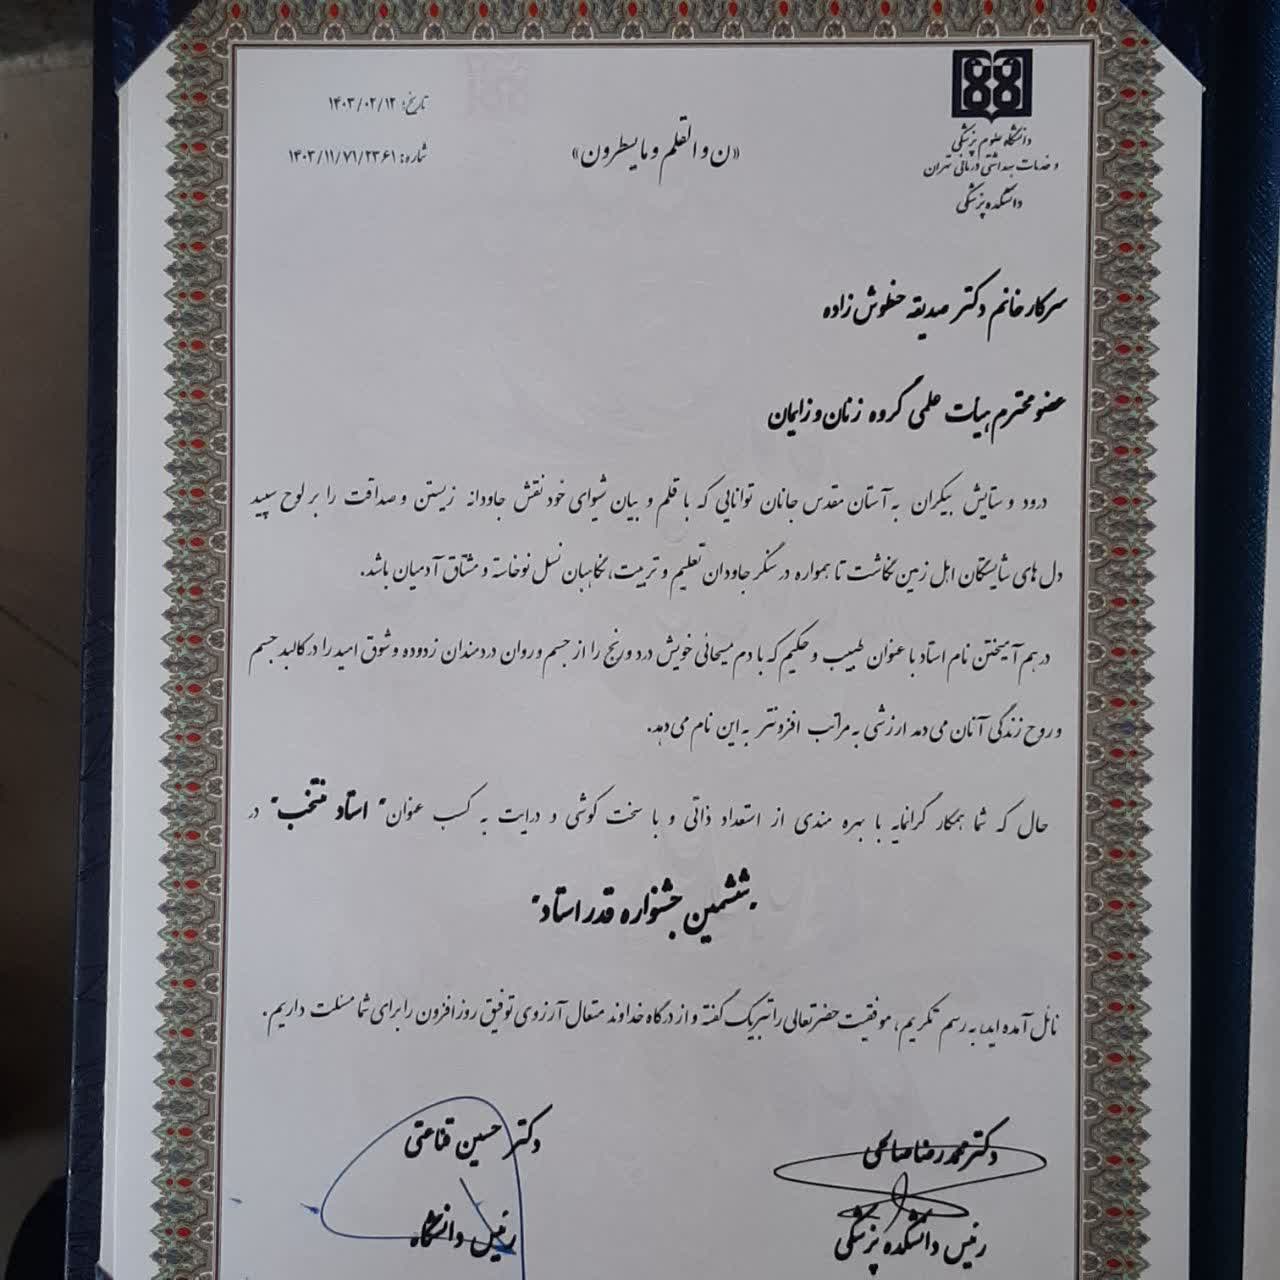 دانشگاه علوم پزشکی
و خدمات بهداشتی درمانی تهران
دانشکده پزشکی
«ن والقلم و مایسطرون»
تاریخ: ۱۴۰۳/۰۲/۱۲
شماره: ۱۴۰۳/۱۱/۷۱/۲۳۶۱
سرکار خانم دکتر صدیقه حنطوش زاده
عضو محترم هیات علمی گروه زنان و زایمان
درود و ستایش بیکران به آستان مقدس جانان توانایی که با قلم و بیان شیوای خود نقش جاودانه زیستن و صداقت را بر لوح سپید
دل های شایستگان اهل زمین نگاشت تا همواره در سنگر جاودان تعلیم و تربیت، نگاهبان نسل نوخاسته و مشتاق آدمیان باشد.
در هم آمیختن نام استاد با عنوان طبیب و حکیم که با دم مسیحائی خویش درد و رنج را از جسم و روان دردمندان زدوده و شوق امید را در کالبد جسم
و روح زندگی آنان می دمد ارزشی به مراتب افزونتر به این نام می دهد.
حال که شما همکار گرانمایه با بهره مندی از استعداد ذاتی و با سخت کوشی و درایت به کسب عنوان " استاد منتخب " در
"ششمین جشنواره قدر استاد"
نائل آمده اید، به رسم تکریم، موفقیت حضرتعالی را تبریک گفته و از درگاه خداوند متعال آرزوی توفیق روز افزون را برای شما مسئلت داریم.
دکتر محمدرضا صالحی
رئیس دانشکده پزشکی
دکتر حسین قناعتی
رئیس دانشگاه